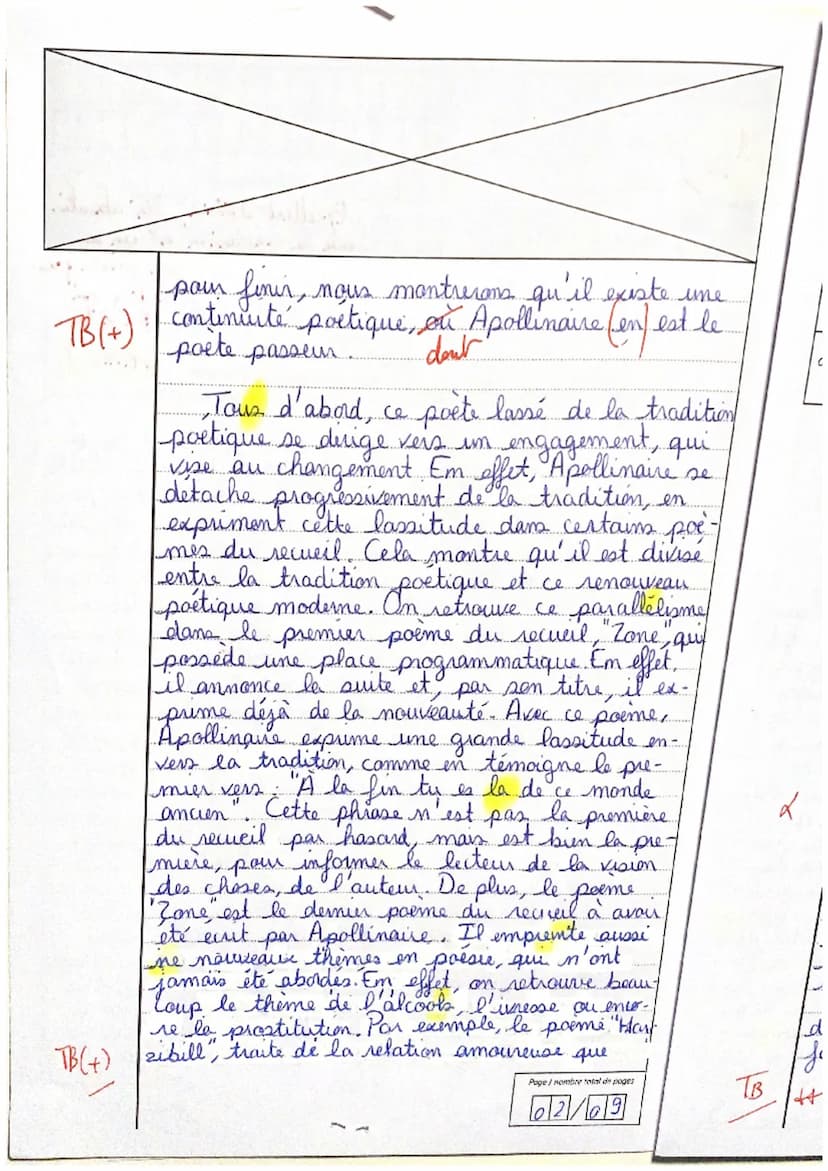 pour finir, nous montrerons qu'il existe une
TB(+) : continuité poétique, où Apollinaire (en) est le
dont
poète passeur.
Tous d'abord, ce poète lassé de la tradition
poétique se dirige vers un engagement, qui
vise au changement. Em effet, Apollinaire se
détache progressivement de la tradition, en
expriment cette lassitude dans certains poè-
mes du recueil. Cela montre qu'il est divisé
entre la tradition poétique et ce renouveau
poétique moderne. On retrouve ce parallélisme
dans le premier poème du recueil, "Zone", qui
possède une place programmatique. Em effet,
il annonce la suite et, par son titre, il ex-
prime déjà de la nouveauté. Avec ce poème,
Apollinaire exprime une grande lassitude en-
vers la tradition, comme en témoigne le pre-
mier vers : "À la fin tu es la de ce monde
ancien". Cette phrase n'est pas la première
du recueil par hasard, mais est bien la pre-
mière, pour informer le lecteur de la vision
des choses, de l'auteur. De plus, le poème
"Zone" est le dernier poème du recueil à avoir
été écrit par Apollinaire. Il empreinte aussi
ne nouveaux thèmes en poésie, qui n'ont
jamais été abordés. Em effet, on retrouve beau-
coup le thème de l'alcools, l'ivresse ou enco-
re la prostitution. Par exemple, le poème "Mar-
TB(+)
zibill", traite de la relation amoureuse que
Page / nombre total de pages
02/09
TB
++